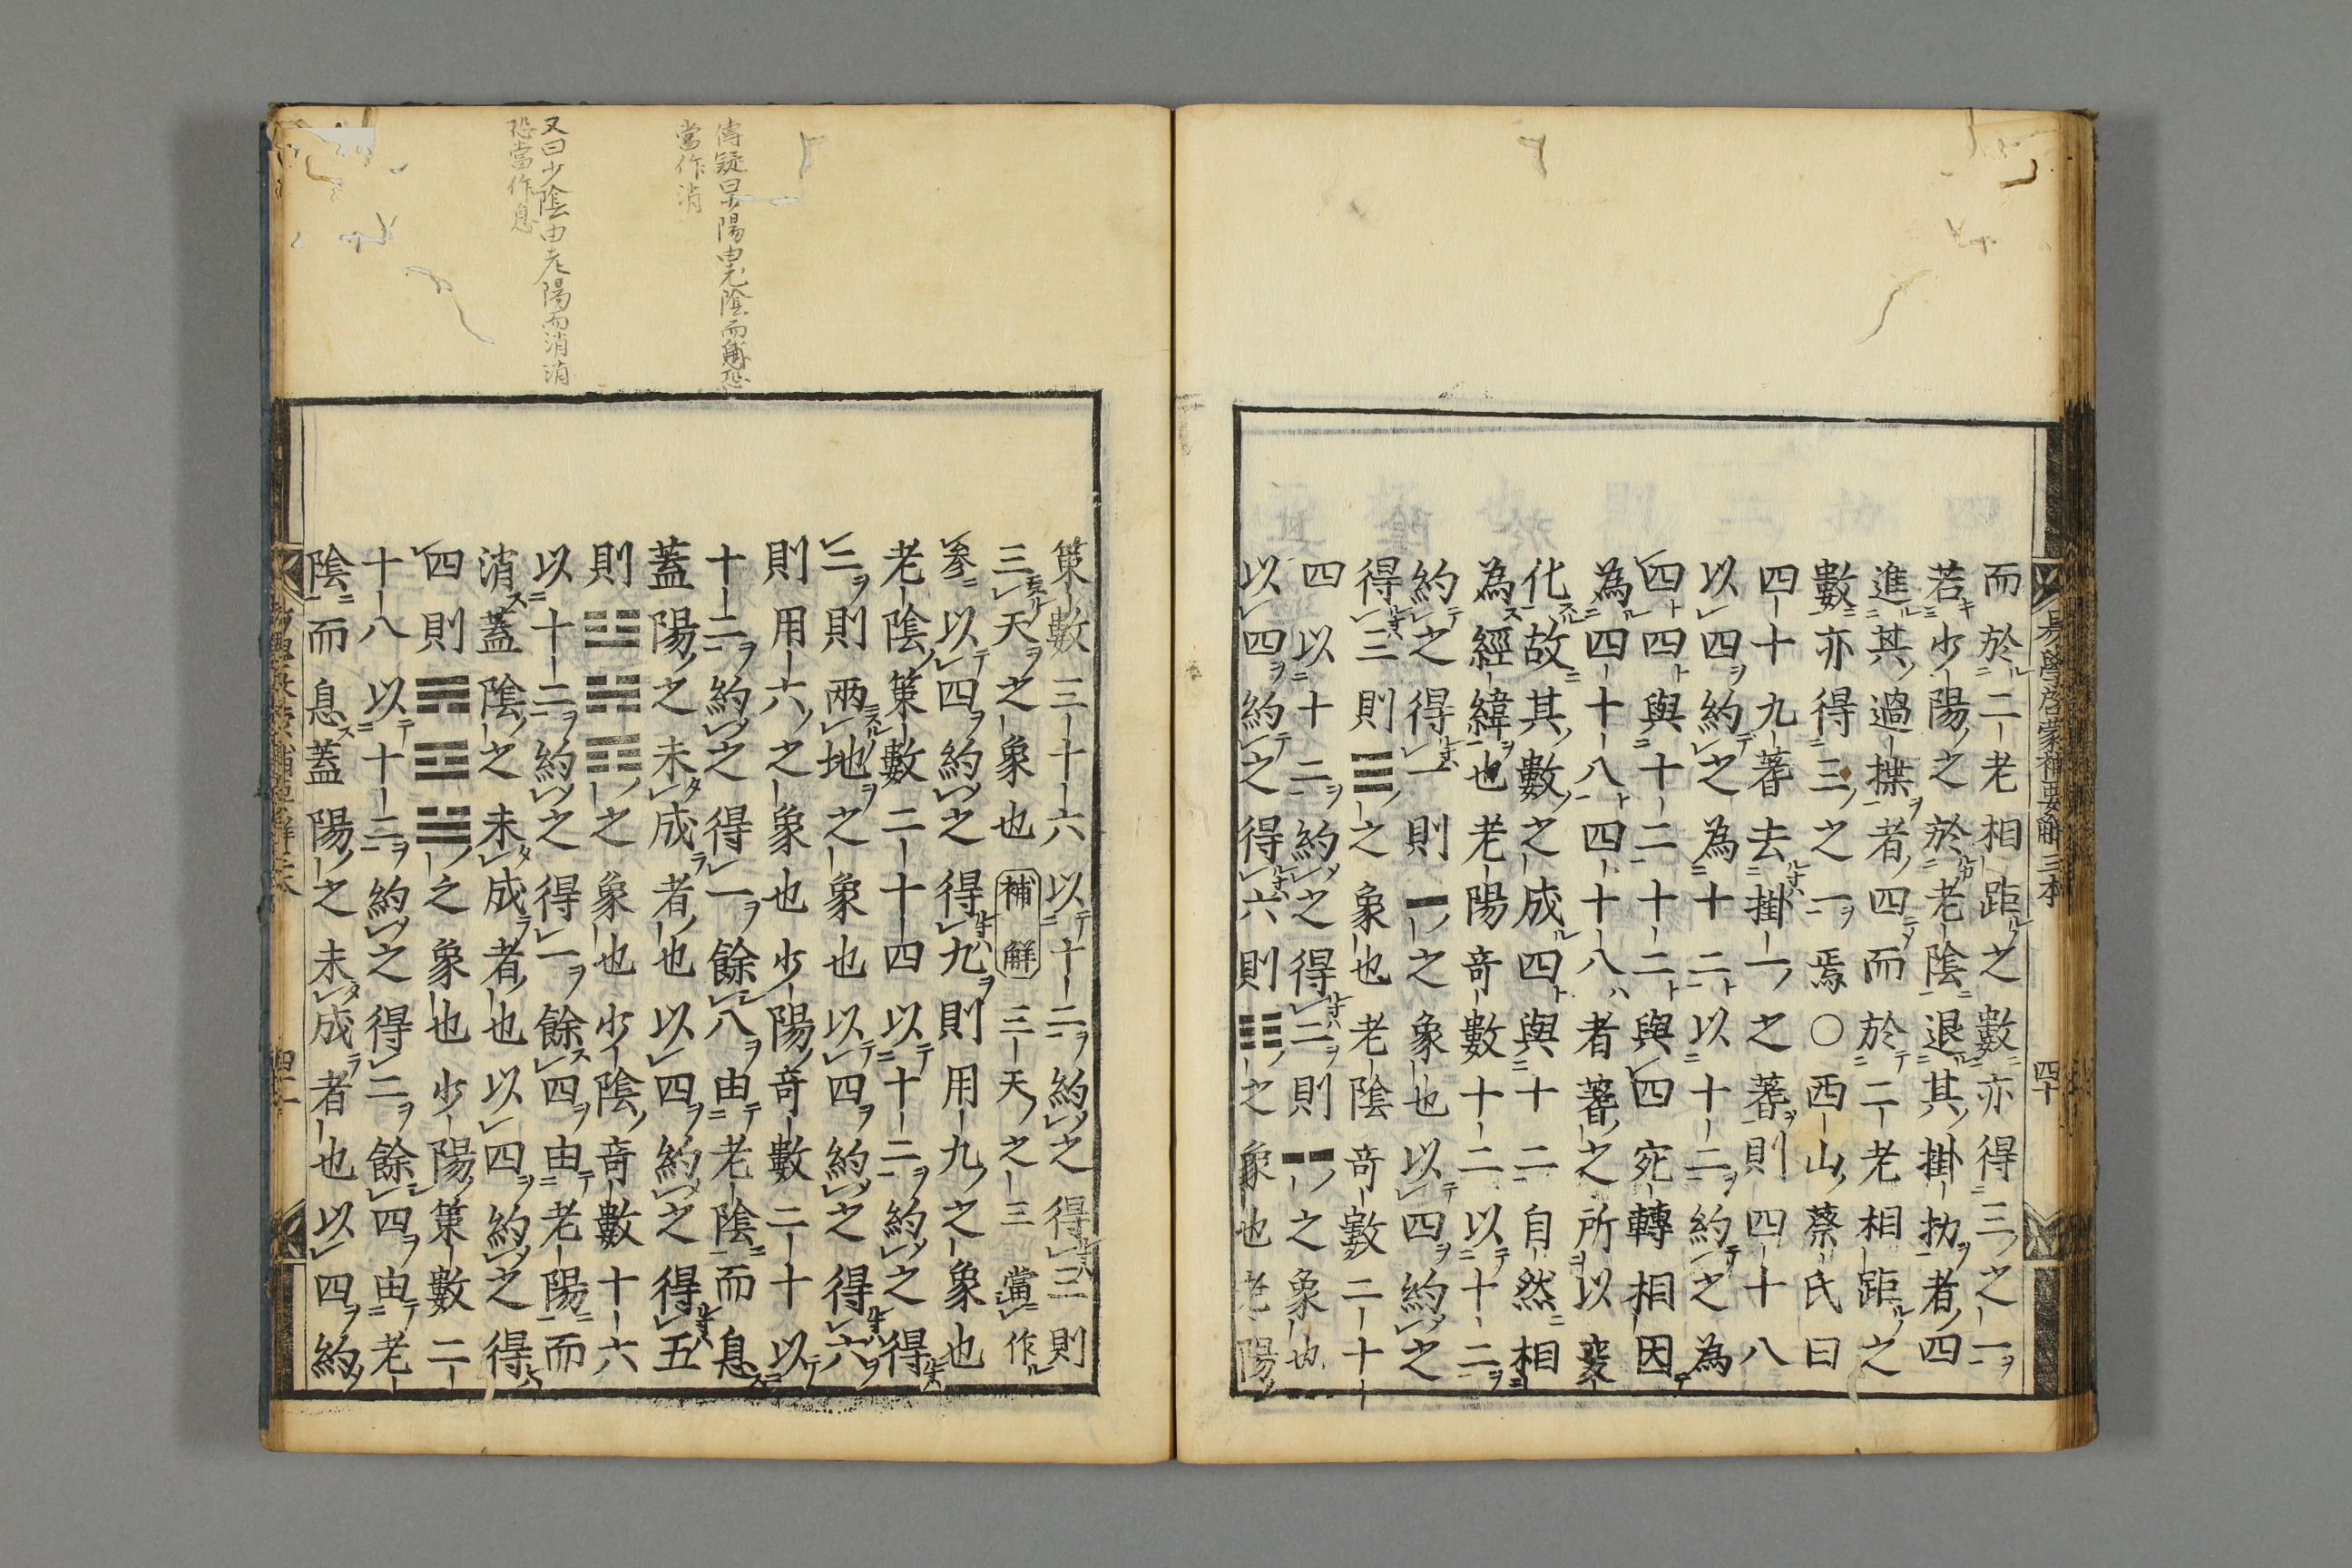 易學啓蒙補要解 三本 四十
而於二老相距之數亦得三之一
若少陽之於老陰退其掛扐者四
進其過揲者四而於二老相距之
數亦得三之一焉○西山蔡氏曰
四十九蓍去掛一之蓍則四十八
以四約之為十二以十二約之為
四四與十二十二與四宛轉相因
為四十八四十八者蓍之所以變
化故其數之成四與十二自然相
為經緯也老陽奇數十二以十二
約之得一則⚊之象也以四約之
得三則☰之象也老陰奇數二十
四以十二約之得二則⚋之象也
以四約之得六則☷之象也老陽
策數三十六以十二約之得三則
三天之象也補解三天之三當作
參以四約之得九則用九之象也
老陰策數二十四以十二約之得
二則兩地之象也以四約之得六
則用六之象也少陽奇數二十以
十二約之得一餘八由老陰而息
蓋陽之未成者也以四約之得五
則☳☵☶之象也少陰奇數十六
以十二約之得一餘四由老陽而
消蓋陰之未成者也以四約之得
四則☴☲☱之象也少陽策數二
十八以十二約之得二餘四由老
陰而息蓋陽之未成者也以四約
傳疑曰少陽由老陰而息息恐
當作消
又曰少陰由老陽而消消
恐當作息